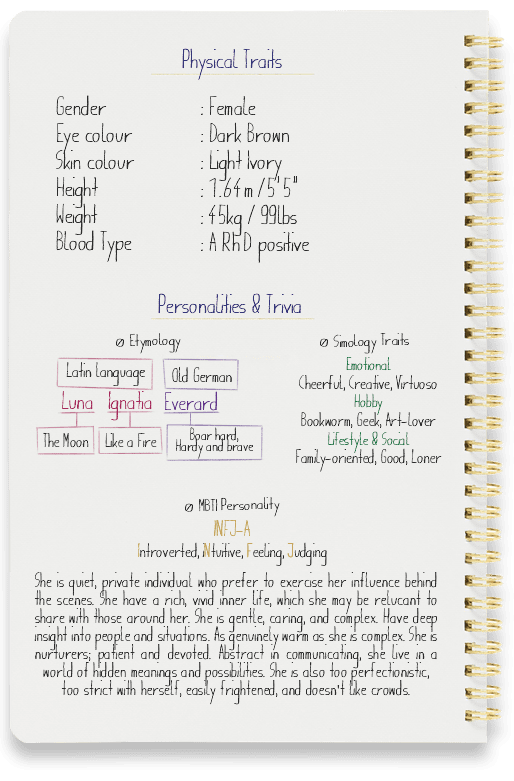 Physical Traits
Gender : Female
Eye colour : Dark Brown
Skin colour : Light Ivory
Height : 1.64 m / 5'5"
Weight : 45kg / 99lbs
Blood Type : A RhD positive
Personalities & Trivia
Ø Etymology
Ø Simology Traits
Latin language
Old German
Luna Ignatia Everard
The Moon
Like a Fire
Boar hard,
Hardy and brave
Emotional
Cheerful, Creative, Virtuoso
Hobby
Bookworm, Geek, Art-lover
Lifestyle & Social
Family-oriented, Good, Loner
Ø MBTI Personality
INFJ-A
Introverted, Ntuitive, Feeling, Judging
She is quiet, private individual who prefer to exercise her influence behind
the scenes. She have a rich, vivid inner life, which she may be relucant to
share with those around her. She is gentle, caring, and complex. Have deep
insight into people and situations. As genuinely warm as she is complex. She is
nurturers; patient and devoted. Abstract in communicating, she live in a
world of hidden meanings and possibilities. She is also too perfectionistic,
too strict with herself, easily frightened, and doesn't like crowds.